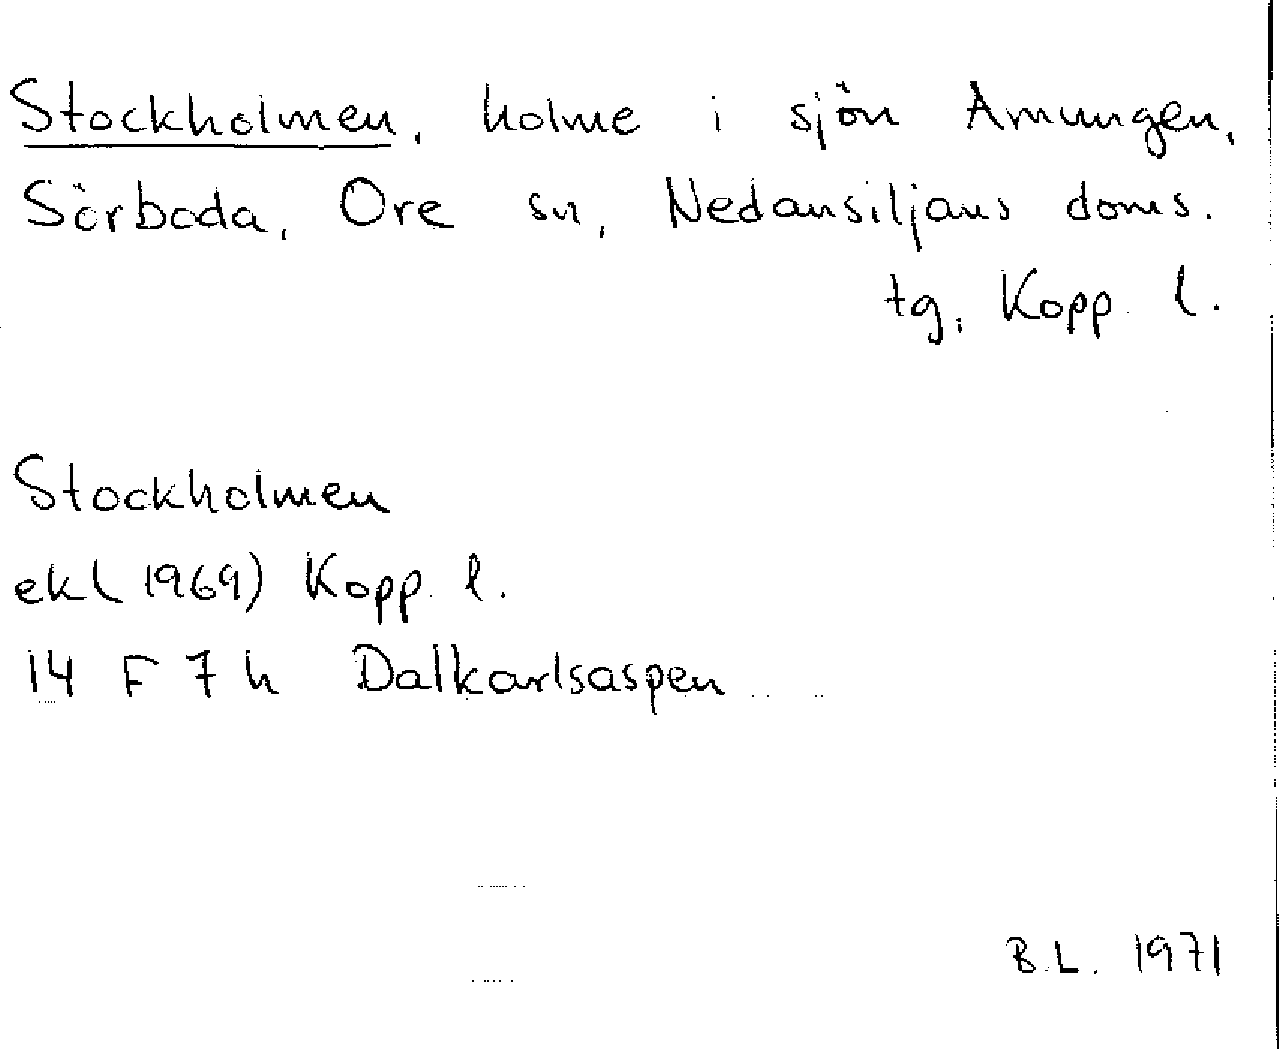 Stockholmen, holme i sjön Amungen,
Sörboda, Ore sn, Nedansiljans doms.
tg, Kopp. l.
Stockholmen
ekl (1969) Kopp. l.
14 F 7 h Dalkarlsaspen
B.L. 1971